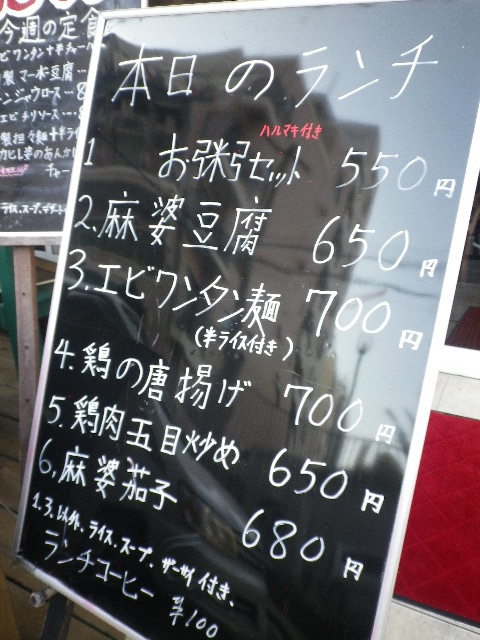 今週の定食
本日のランチ
ハルマキ付き
1 お粥セット 550円
2.麻婆豆腐 650円
3.エビワンタン麺 700円
(半ライス付き)
4.鶏の唐揚げ 700円
5.鶏肉五目炒め 650円
6,麻婆茄子 680円
1.3.以外、ライス、スープ、ザーサイ付き、
ランチコーヒー ¥100